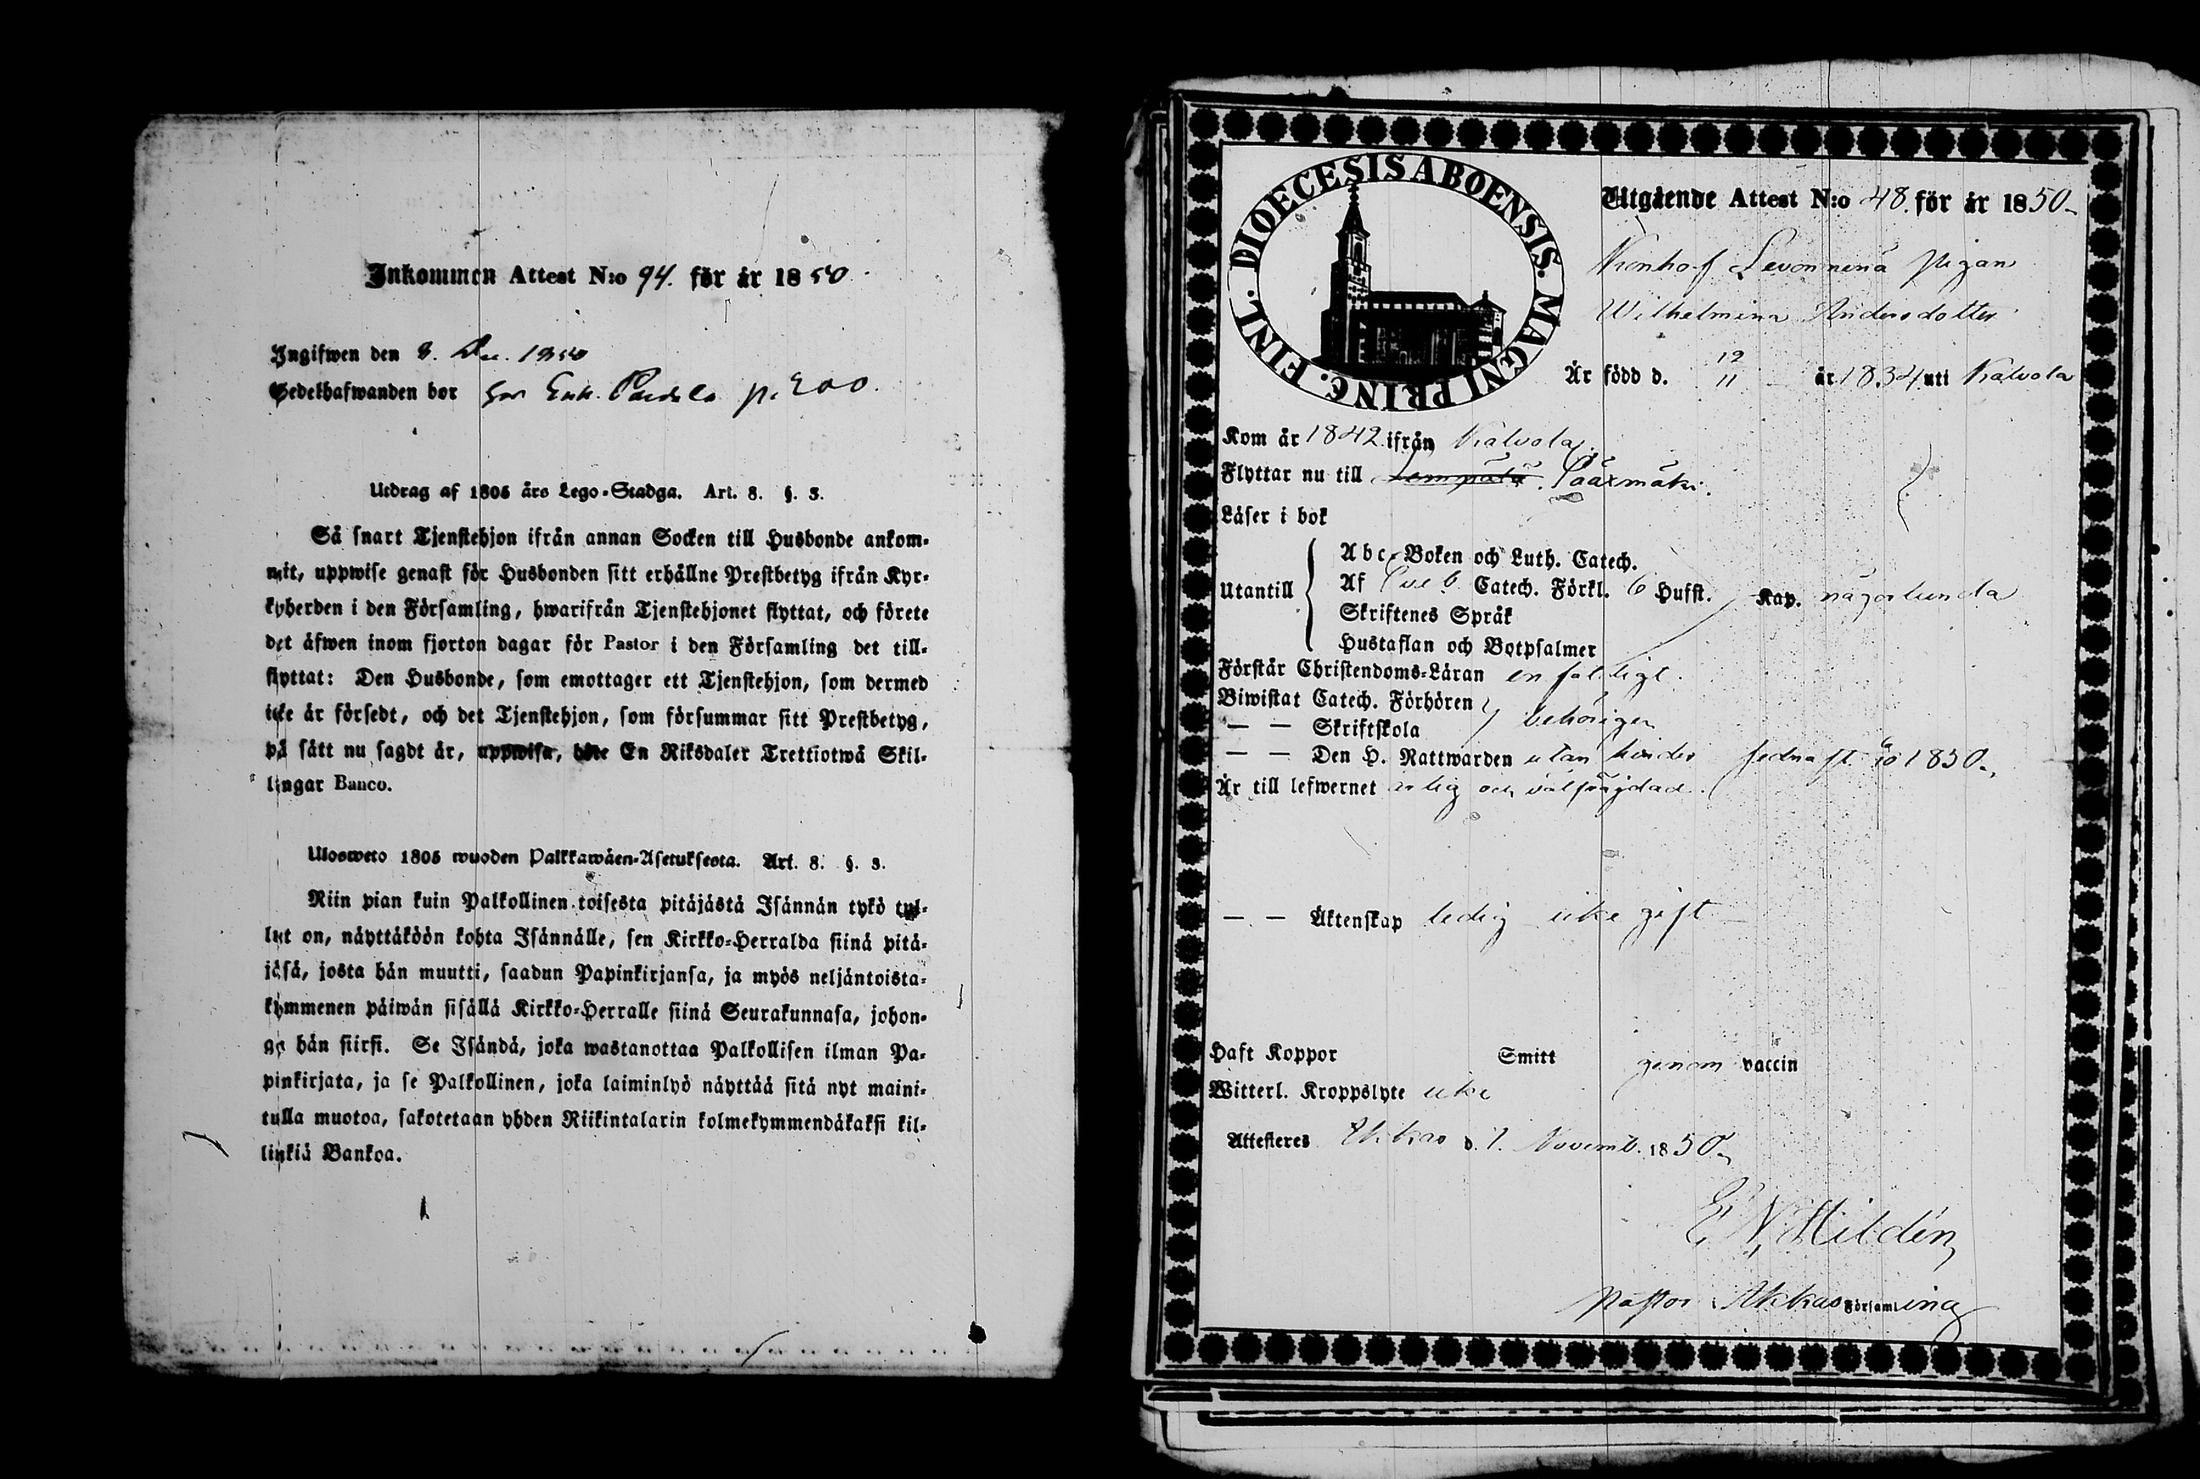 Inkommen Attest N:o 94. för år 1850.
Ingifwen den 8. Dec. 1850
Sedelhafwanden bor hos Enk. p. 200.
Utdrag af 1805 års Lego-Stadga. Art. 8. §. 3.
Så snart Tjenstehjon ifrån annan Socken till Husbonde ankom-
mit, uppwise genast för Husbonden sitt erhållne Prestbetyg ifrån Kyr-
kyherden i den Församling, hwarifrån Tjenstehjonet flyttat, och förete
det äfwen inom fjorton dagar för Pastor i den Församling det till-
flyttat: Den Husbonde, som emottager ett Tjenstehjon, som dermed
icke är försedt, och det Tjenstehjon, som försummar sitt Prestbetyg,
på sätt nu sagdt är, uppwisa, böte En Riksdaler Trettiotwå Skil-
lingar Banco.
Ulosweto 1805 wuoden Palkkawäen-Asetuksesta. Art. 8. §. 3.
Niin pian kuin Palkollinen toisesta pitäjästä Isännän tykö tul-
lut on, näyttäköön kohta Isännälle, sen Kirkko-Herralda siinä pitä-
jäsä, josta hän muutti, saadun Papinkirjansa, ja myös neljäntoista-
kymmenen päiwän sisällä Kirkko-Herralle siinä Seurakunnasa, johon-
ga hän siirsi. Se Isändä, joka wastanottaa Palkollisen ilman Pa-
pinkirjata, ja se Palkollinen, joka laiminlyö näyttää sitä nyt maini-
tulla muotoa, sakotetaan yhden Riikintalarin kolmekymmendäkaksi kil-
linkiä Bankoa.
DIOECESIS ABOENSIS. MAGNI PRINC. FINL.
Utgående Attest N:o 48. för år 1850
pigan
Wilhelmina Andersdotter
Är född d. 12/11 år 1834 uti Kalvola
Kom år 1842 ifrån Kalvola.
Flyttar nu till Lempälä. Sääxmäki.
Läser i bok
Abc-Boken och Luth. Catech.
Utantill Af Luth. Catech. Förkl. 6 Hufst. Kap. någorlunda
Skriftenes Språk
Hustaflan och Botpsalmer
Förstår Christendoms-Läran enfaldigt.
Biwistat Catech. Förhören behörigen
— — Skriftskola
— — Den H. Nattwarden utan hinder sednast 1850
Är till lefwernet ärlig och välfrägdad.
— — Äktenskap ledig icke gift
Haft Koppor Smitt genom vaccin
Witterl. Kroppslyte icke
Attesteres Akkas d. 1. Novemb. 1850
E N Hildén
Pastor i Akkas Församling